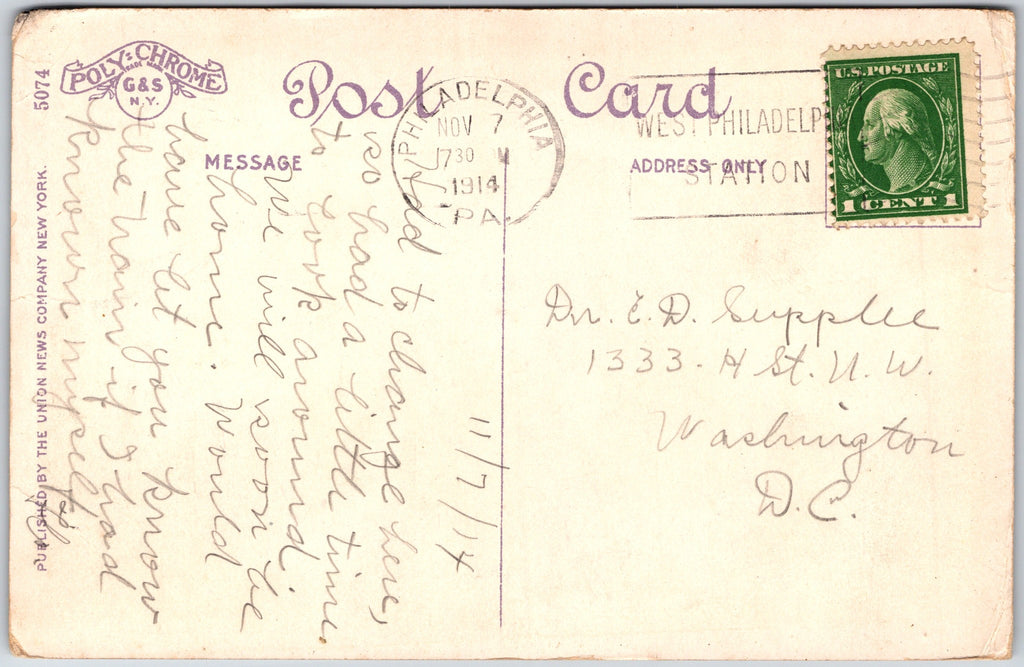 POLY-CHROME
TRADE MARK
G&S
N.Y.
5074
PUBLISHED BY THE UNION NEWS COMPANY NEW YORK.
Post Card
MESSAGE
ADDRESS ONLY
PHILADELPHIA
NOV 7
730
1914
PA.
WEST PHILADELP
STATION
U.S. POSTAGE
1 CENT 1
11/7/14
Had to change here,
so had a little time
to look around.
We will soon be
home. Would
have let you know
the train if I had
known myself.
Dr. E. D. Supplee
1333. H St. N. W.
Washington
D.C.